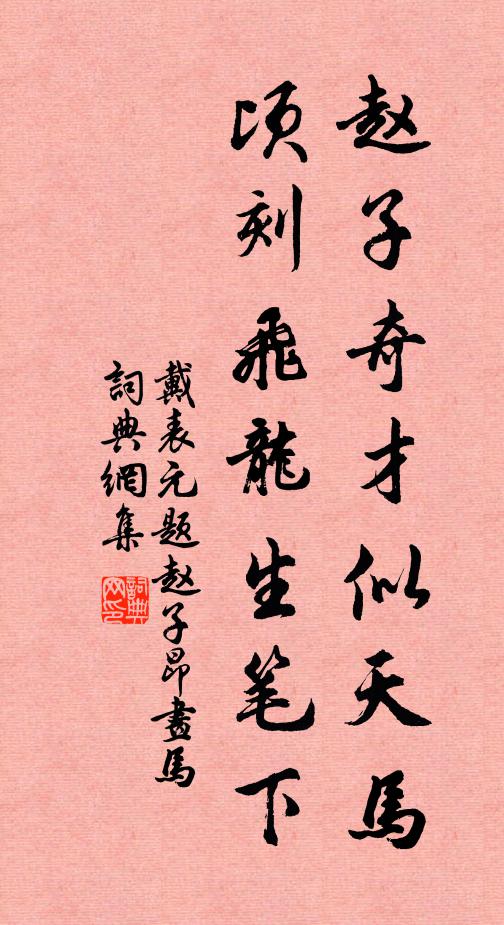 赵子奇才似天馬
頃刻飛龍生笔下
戴表元题赵子昂畫馬
詞典網集
詞典網印